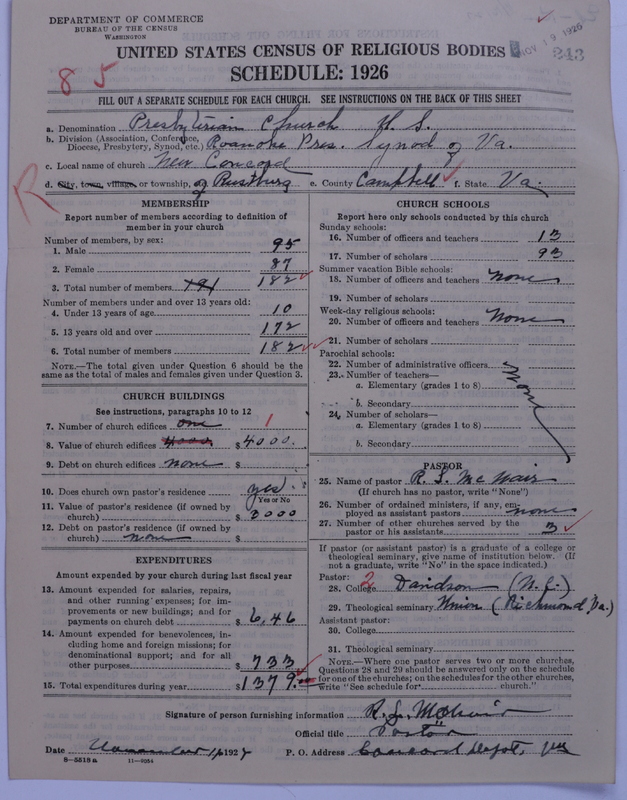 DEPARTMENT OF COMMERCE
BUREAU OF THE CENSUS
WASHINGTON
NOV 19 1926
243
UNITED STATES CENSUS OF RELIGIOUS BODIES
SCHEDULE: 1926
85
FILL OUT A SEPARATE SCHEDULE FOR EACH CHURCH. SEE INSTRUCTIONS ON THE BACK OF THIS SHEET
a. Denomination Presbyterian Church U. S.
b. Division (Association, Conference, Diocese, Presbytery, Synod, etc.) Roanoke Pres. Synod of Va.
c. Local name of church New Concord
d. City, town, village, or township, of Rustburg e. County Campbell f. State Va.
R
MEMBERSHIP
Report number of members according to definition of
member in your church
Number of members, by sex:
1. Male 95
2. Female 87
3. Total number of members 191 182
Number of members under and over 13 years old:
4. Under 13 years of age 10
5. 13 years old and over 172
6. Total number of members 182
NOTE.—The total given under Question 6 should be
the same as the total of males and females given under Question 3.
CHURCH BUILDINGS
See instructions, paragraphs 10 to 12
7. Number of church edifices one 1
8. Value of church edifices 4000 $4000.
9. Debt on church edifices none $
10. Does church own pastor's residence yes
Yes or No
11. Value of pastor's residence (if owned by
church) $3000
12. Debt on pastor's residence (if owned by
church) none $
EXPENDITURES
Amount expended by your church during last fiscal year
13. Amount expended for salaries, repairs,
and other running expenses; for im-
provements or new buildings; and for
payments on church debt $646
14. Amount expended for benevolences, in-
cluding home and foreign missions; for
denominational support; and for all
other purposes $733
15. Total expenditures during year $1379
CHURCH SCHOOLS
Report here only schools conducted by this church
Sunday schools:
16. Number of officers and teachers 13
17. Number of scholars 93
Summer vacation Bible schools:
18. Number of officers and teachers none
19. Number of scholars
Week-day religious schools:
20. Number of officers and teachers none
21. Number of scholars
Parochial schools:
22. Number of administrative officers none
23. Number of teachers—
a. Elementary (grades 1 to 8)
b. Secondary
24. Number of scholars—
a. Elementary (grades 1 to 8)
b. Secondary
PASTOR
25. Name of pastor R. L. McNair
(If church has no pastor, write "None")
26. Number of ordained ministers, if any, em-
ployed as assistant pastors none
27. Number of other churches served by the
pastor or his assistants 3
If pastor (or assistant pastor) is a graduate of a college or
theological seminary, give name of institution below. (If
not a graduate, write "No" in the space indicated.)
Pastor:
28. College 2 Davidson (N.C.)
29. Theological seminary Union (Richmond Va.)
Assistant pastor:
30. College
31. Theological seminary
NOTE.—Where one pastor serves two or more churches,
Questions 28 and 29 should be answered only on the schedule
for one of the churches; on the schedules for the other churches,
write "See schedule for church."
Signature of person furnishing information R. L. McNair
Official title Pastor
Date November 192
P. O. Address Concord Depot, Va
8-5518a 11-9034